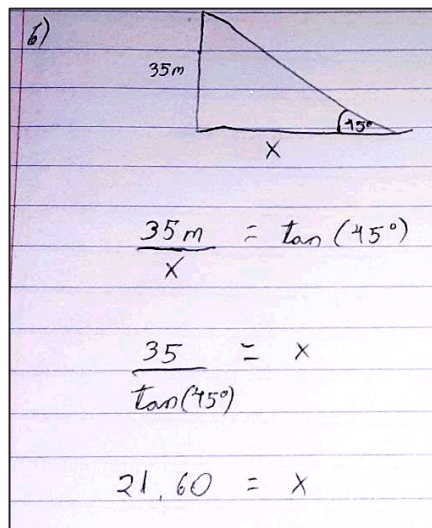 b)
35m
45°
x
35m / x = tan (45°)
35 / tan(45°) = x
21,60 = x